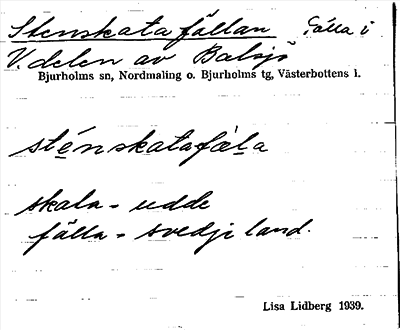 Stenskatafällan fälla i
V. delen av Balsjö
Bjurholms sn, Nordmaling o. Bjurholms tg, Västerbottens l.
sténskatafäla
skata - udde
fälla - svedjeland.
Lisa Lidberg 1939.